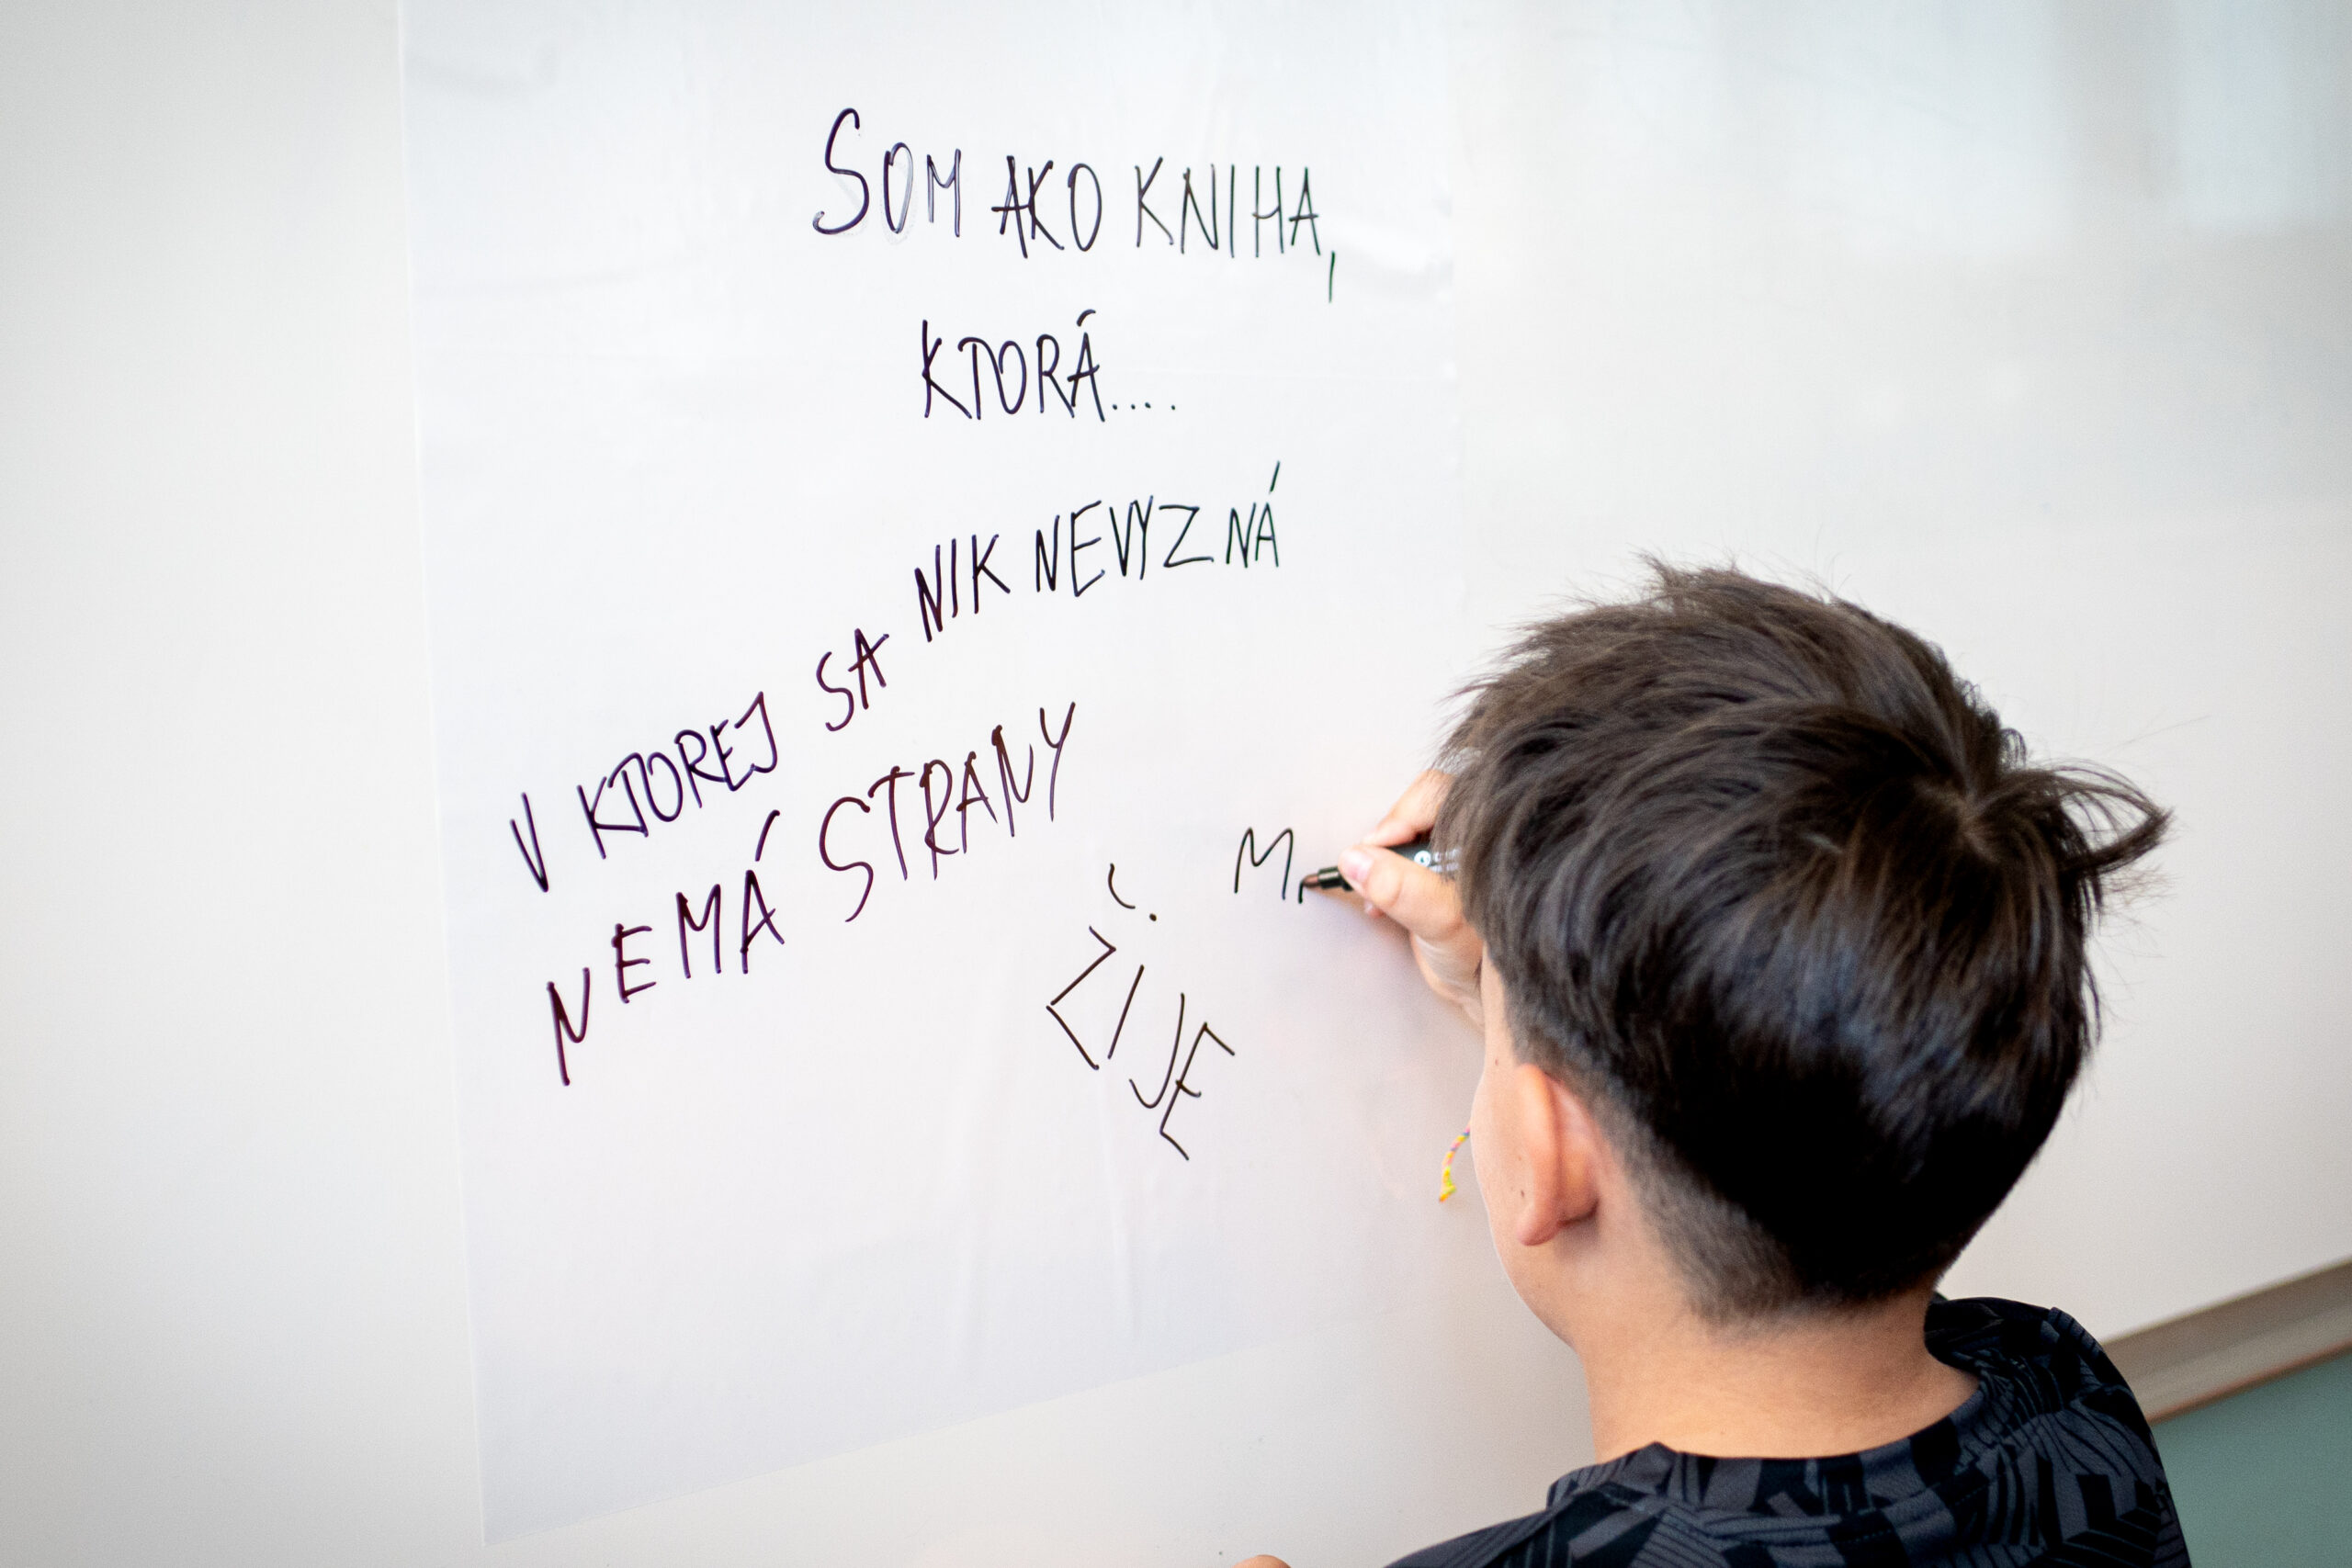 SOM AKO KNIHA,
KTORÁ....
V KTOREJ SA NIK NEVYZNÁ
NEMÁ STRANY
ŽIJE
M